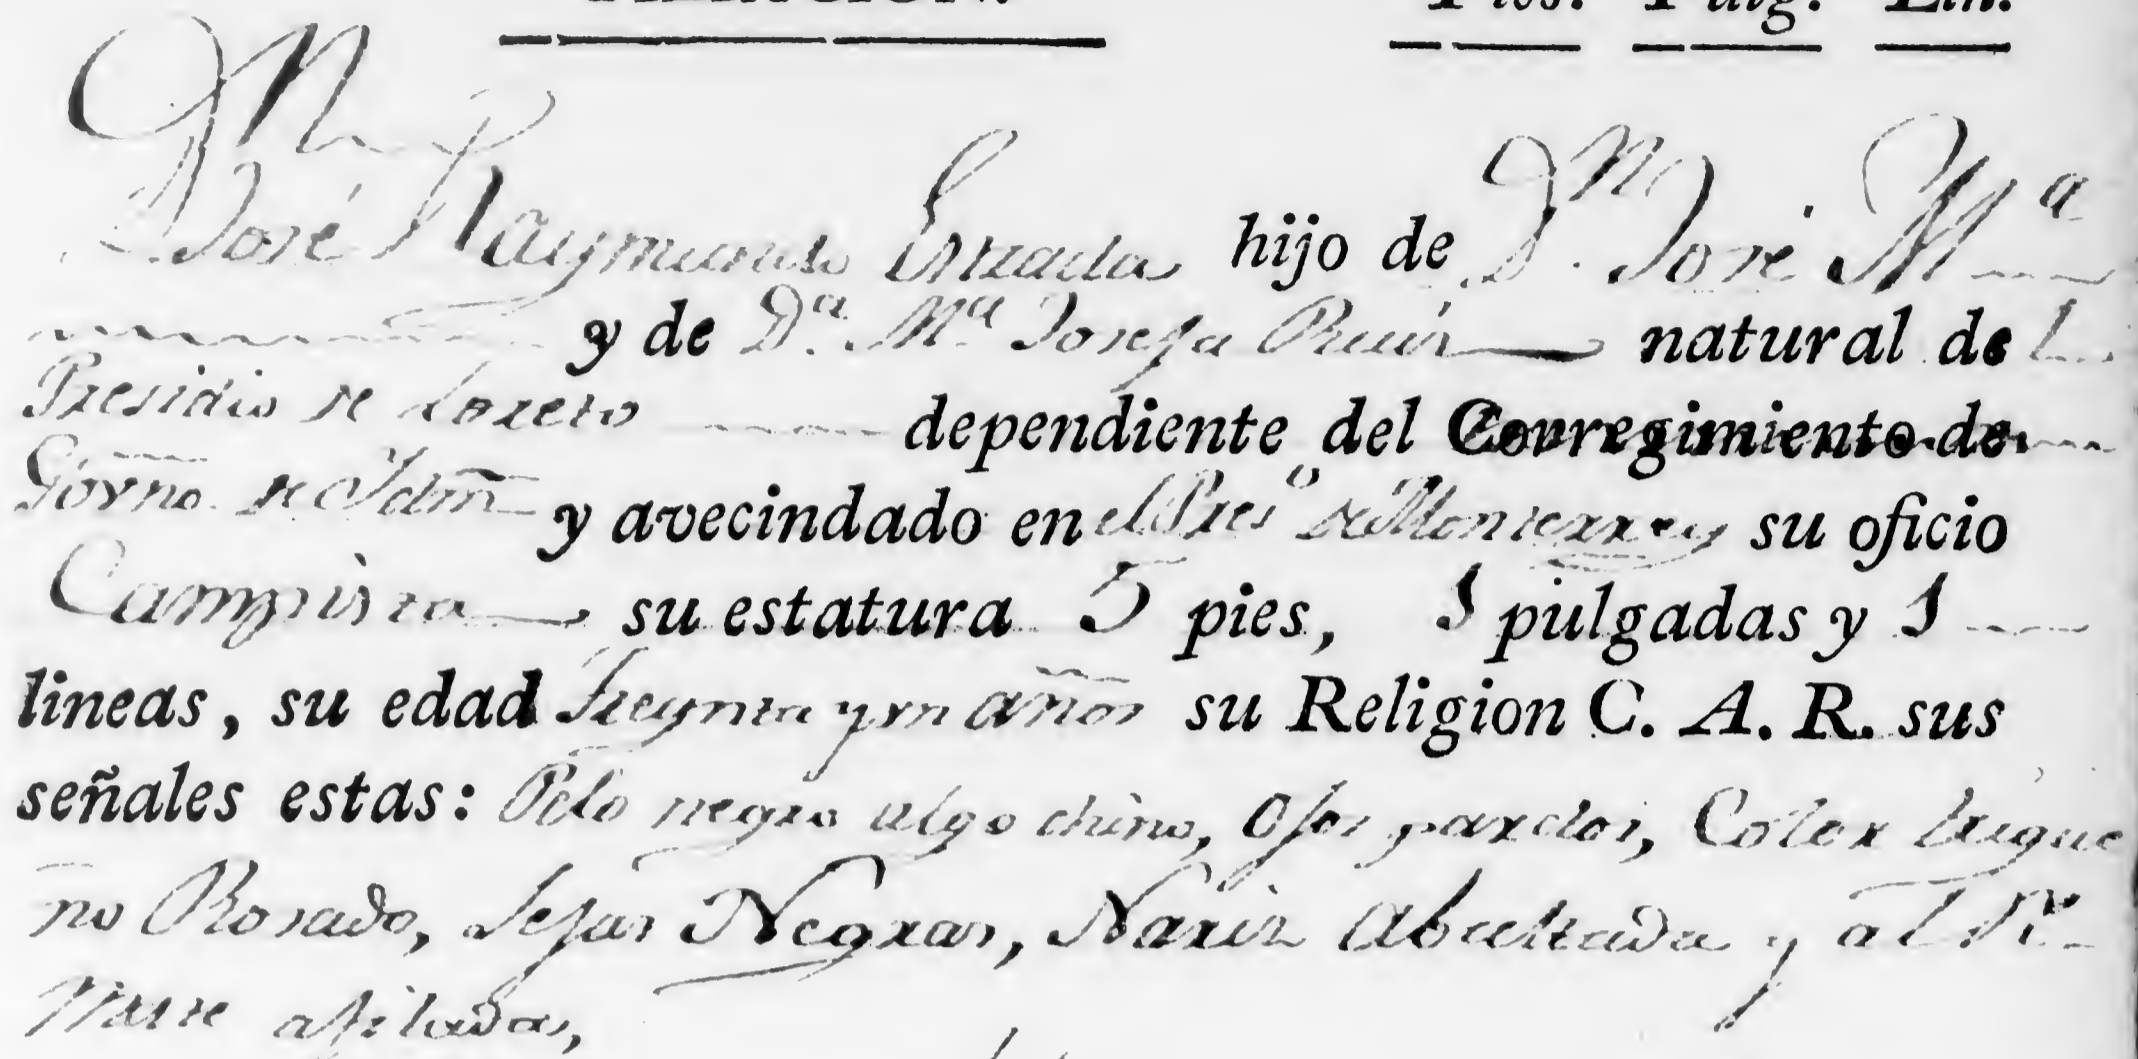 Pies. Pulg. Lin.
Dn
José Raymundo Estrada hijo de Dn. José Ma
y de Da. Ma Josefa Ruiz natural de
Presidio de Loreto dependiente del Corregimiento de
Govno. de Ydm y avecindado en el Preso de Monterrey su oficio
Campista su estatura 5 pies, 1 pulgadas y 1
lineas, su edad Treynta y un años su Religion C. A. R. sus
señales estas: Pelo negro algo chino, Ojos pardos, Color trigue
no Rosado, Sejas Negras, Nariz Abultada y al Re
mate afilada,